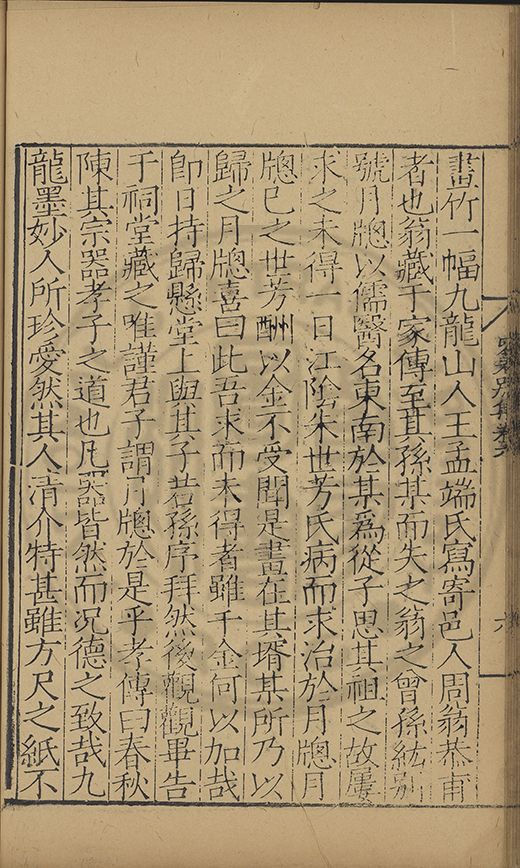 畫竹一幅九龍山人王孟端氏寫寄邑人周翁恭甫
者也翁藏于家傳至其孫某而失之翁之曾孫紘別
號月牕以儒醫名東南於某爲從子思其祖之故屢
求之未得一日江陰朱世芳氏病而求治於月牕月
牕已之世芳酬以金不受聞是畫在其壻某所乃以
歸之月牕喜曰此吾求而未得者雖千金何以加哉
卽日持歸懸堂上與其子若孫序拜然後觀觀畢告
于祠堂藏之唯謹君子謂月牕於是乎孝傳曰春秋
陳其宗器孝子之道也凡器皆然而況德之致哉九
龍墨妙人所珍愛然其人清介特甚雖方尺之紙不
六